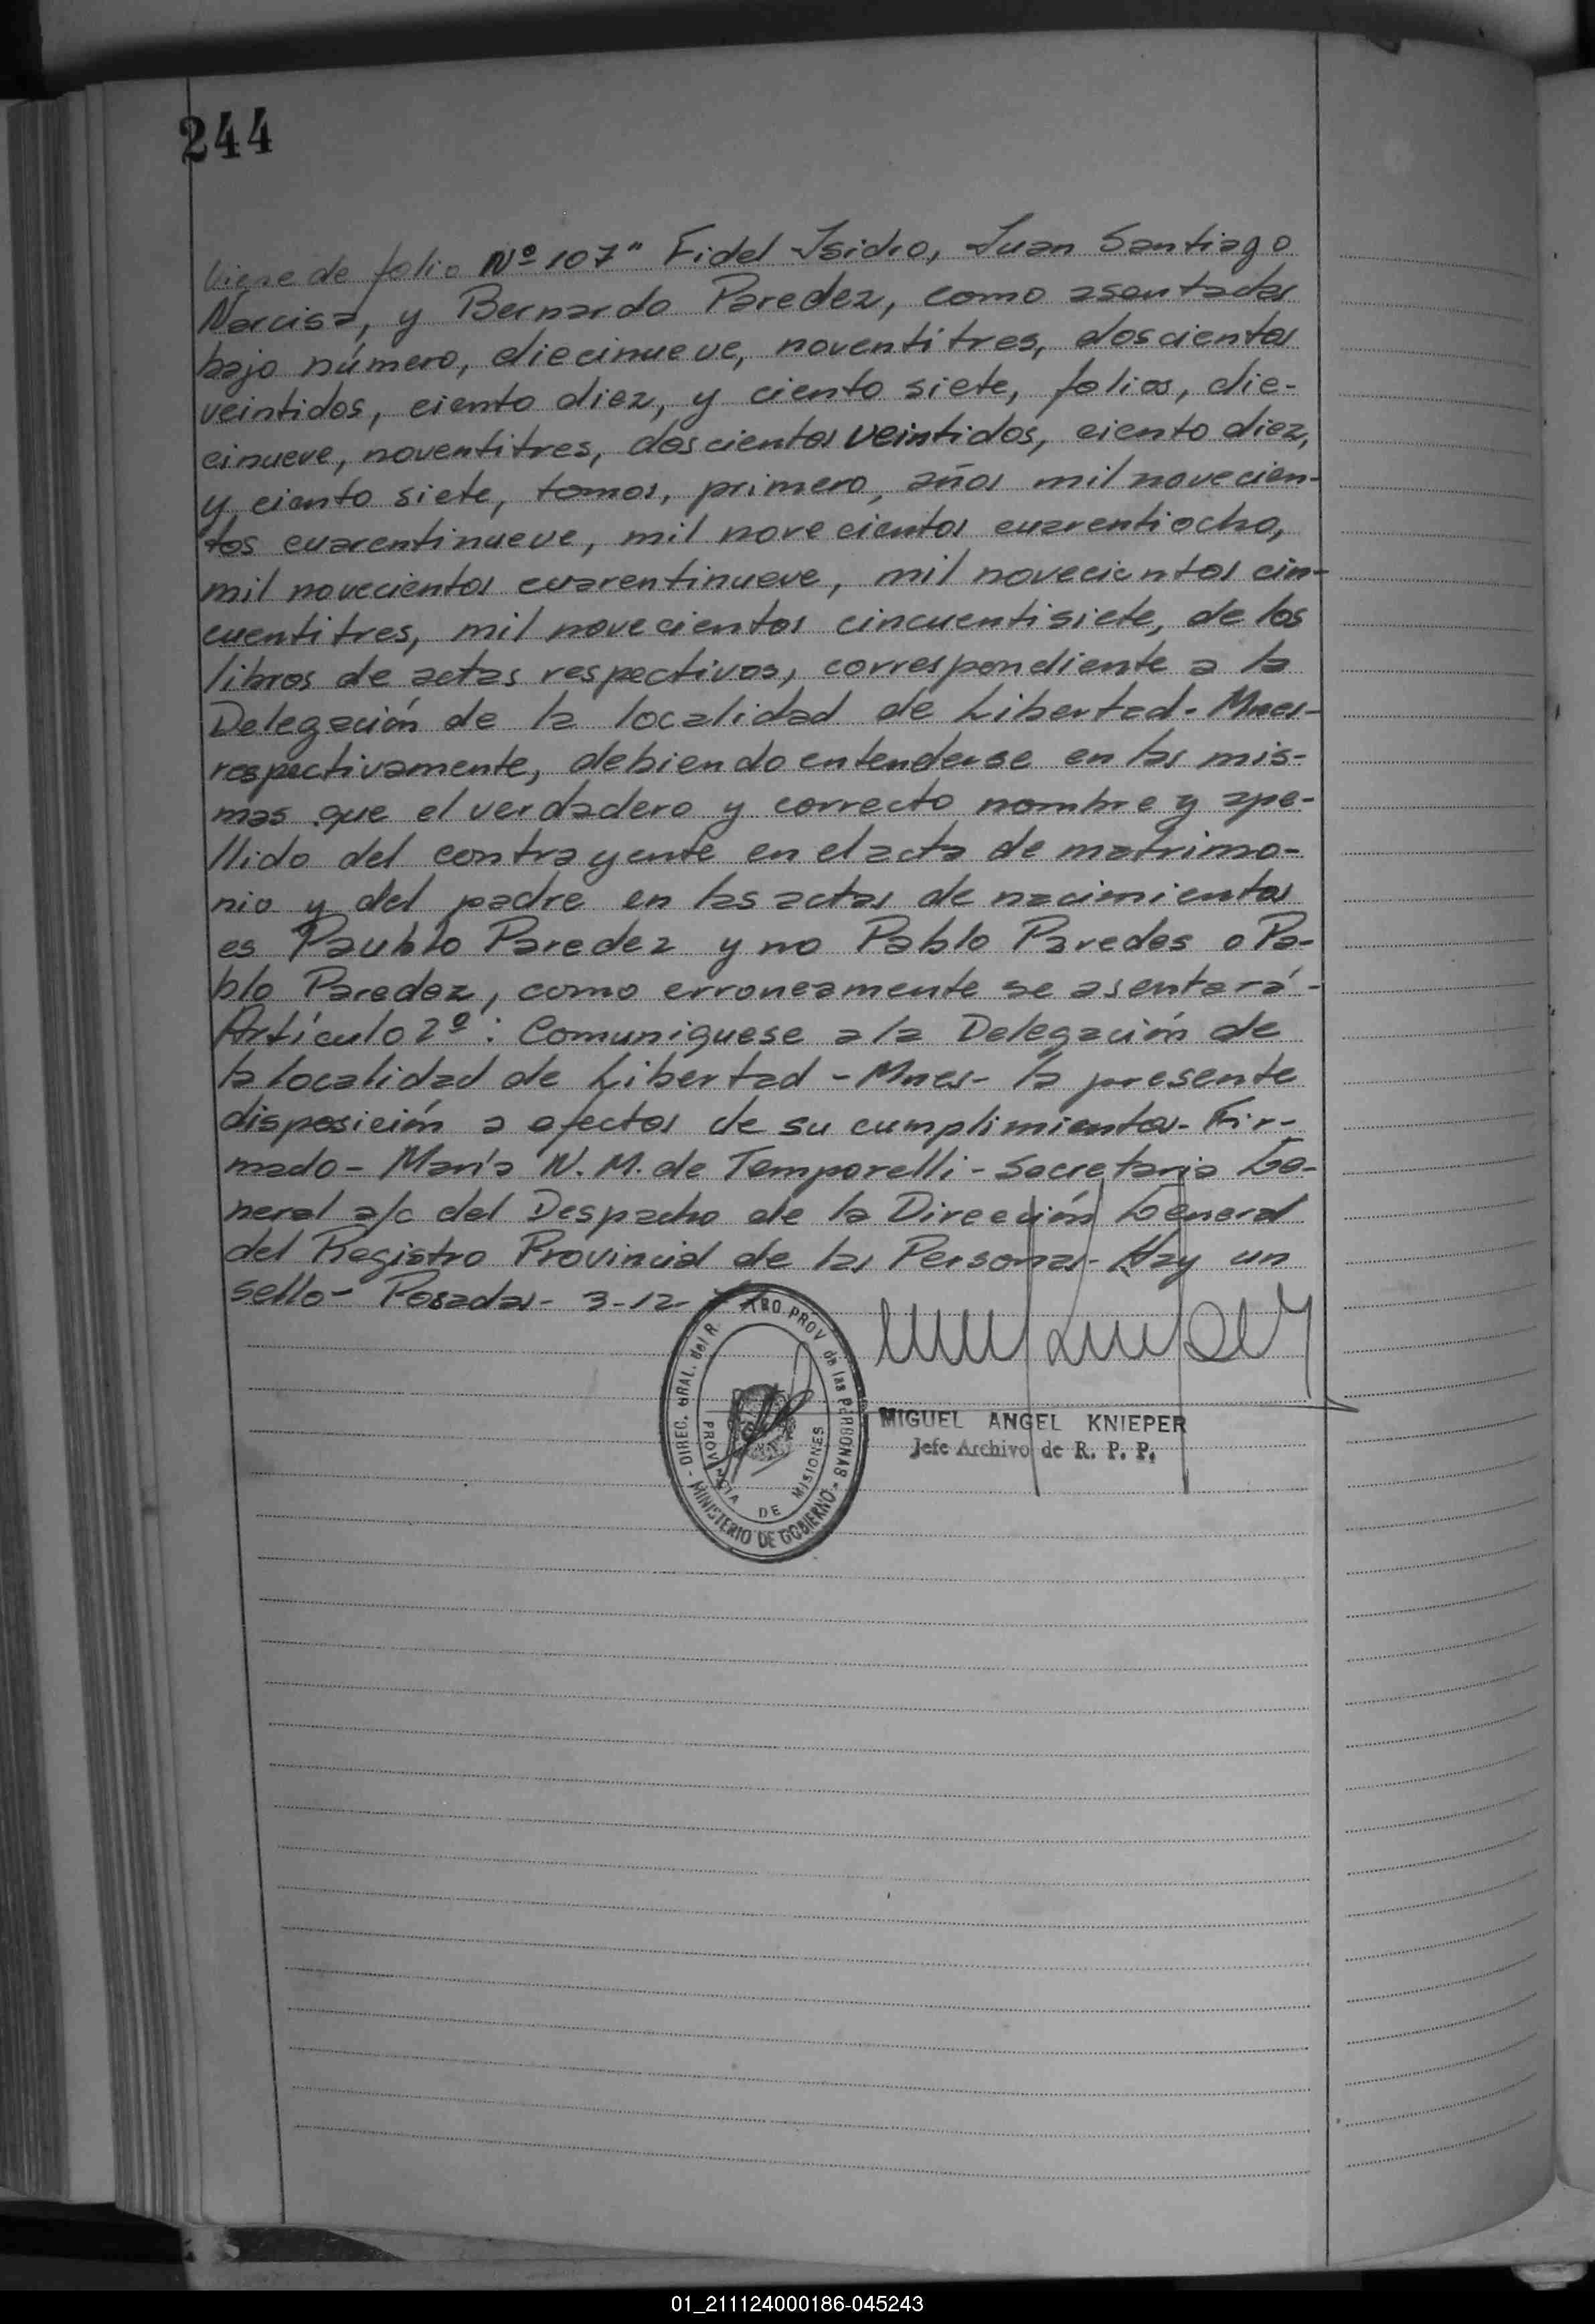 244
Viene de folio Nº 107" Fidel Isidro, Juan Santiago
Narcisa, y Bernardo Paredez, como asentadas
bajo número, diecinueve, noventitres, doscientos
veintidos, ciento diez, y ciento siete, folios, die-
cinueve, noventitres, doscientos veintidos, ciento diez,
y ciento siete, tomos, primero, años mil novecien-
tos cuarentinueve, mil novecientos cuarentiocho,
mil novecientos cuarentinueve, mil novecientos cin-
cuentitres, mil novecientos cincuentisiete, de los
libros de actas respectivos, correspondiente a la
Delegación de la localidad de Libertad - Mnes-
respectivamente, debiendo entenderse en las mis-
mas que el verdadero y correcto nombre y ape-
llido del contrayente en el acta de matrimo-
nio y del padre en las actas de nacimientos
es Paublo Paredez y no Pablo Paredes o Pa-
blo Paredez, como erroneamente se asentará-
Artículo 2º: Comuniquese a la Delegación de
la localidad de Libertad - Mnes- la presente
disposición a efectos de su cumplimientos- Fir-
mado- María N. M. de Temporelli - Secretaria Ge-
neral a/c del Despacho de la Dirección General
del Registro Provincial de las Personas- Hay un
sello- Posadas- 3-12-
DIREC. GRAL. del R. TRO. PROV de las PERSONAS - MINISTERIO DE GOBIERNO -
PROVINCIA DE MISIONES
MIGUEL ANGEL KNIEPER
Jefe Archivo de R. P. P.
01_211124000186-045243